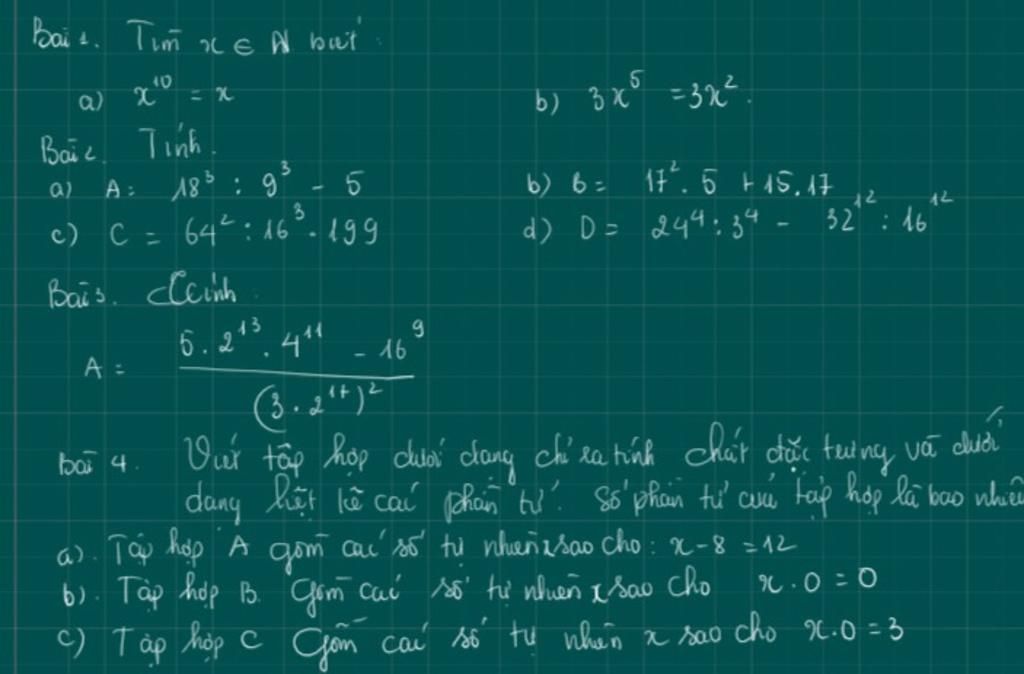 Bài 1. Tìm x ∈ N biết:
a) x¹⁰ = x b) 3x⁵ = 3x².
Bài 2. Tính.
a) A = 18³ : 9³ - 5 b) B = 17² . 5 + 15.17
c) C = 64² : 16³ . 199 d) D = 24⁴ : 3⁴ - 32¹² : 16¹²
Bài 3. Tính.
A = (5 . 2¹³ . 4¹¹ - 16⁹) / (3 . 2¹⁷)²
Bài 4. Viết tập hợp dưới dạng chỉ ra tính chất đặc trưng và dưới
dạng liệt kê các phần tử. Số phần tử của tập hợp là bao nhiêu
a). Tập hợp A gồm các số tự nhiên x sao cho: x - 8 = 12
b). Tập hợp B. Gồm các số tự nhiên x sao cho x . 0 = 0
c) Tập hợp C Gồm các số tự nhiên x sao cho x.0 = 3